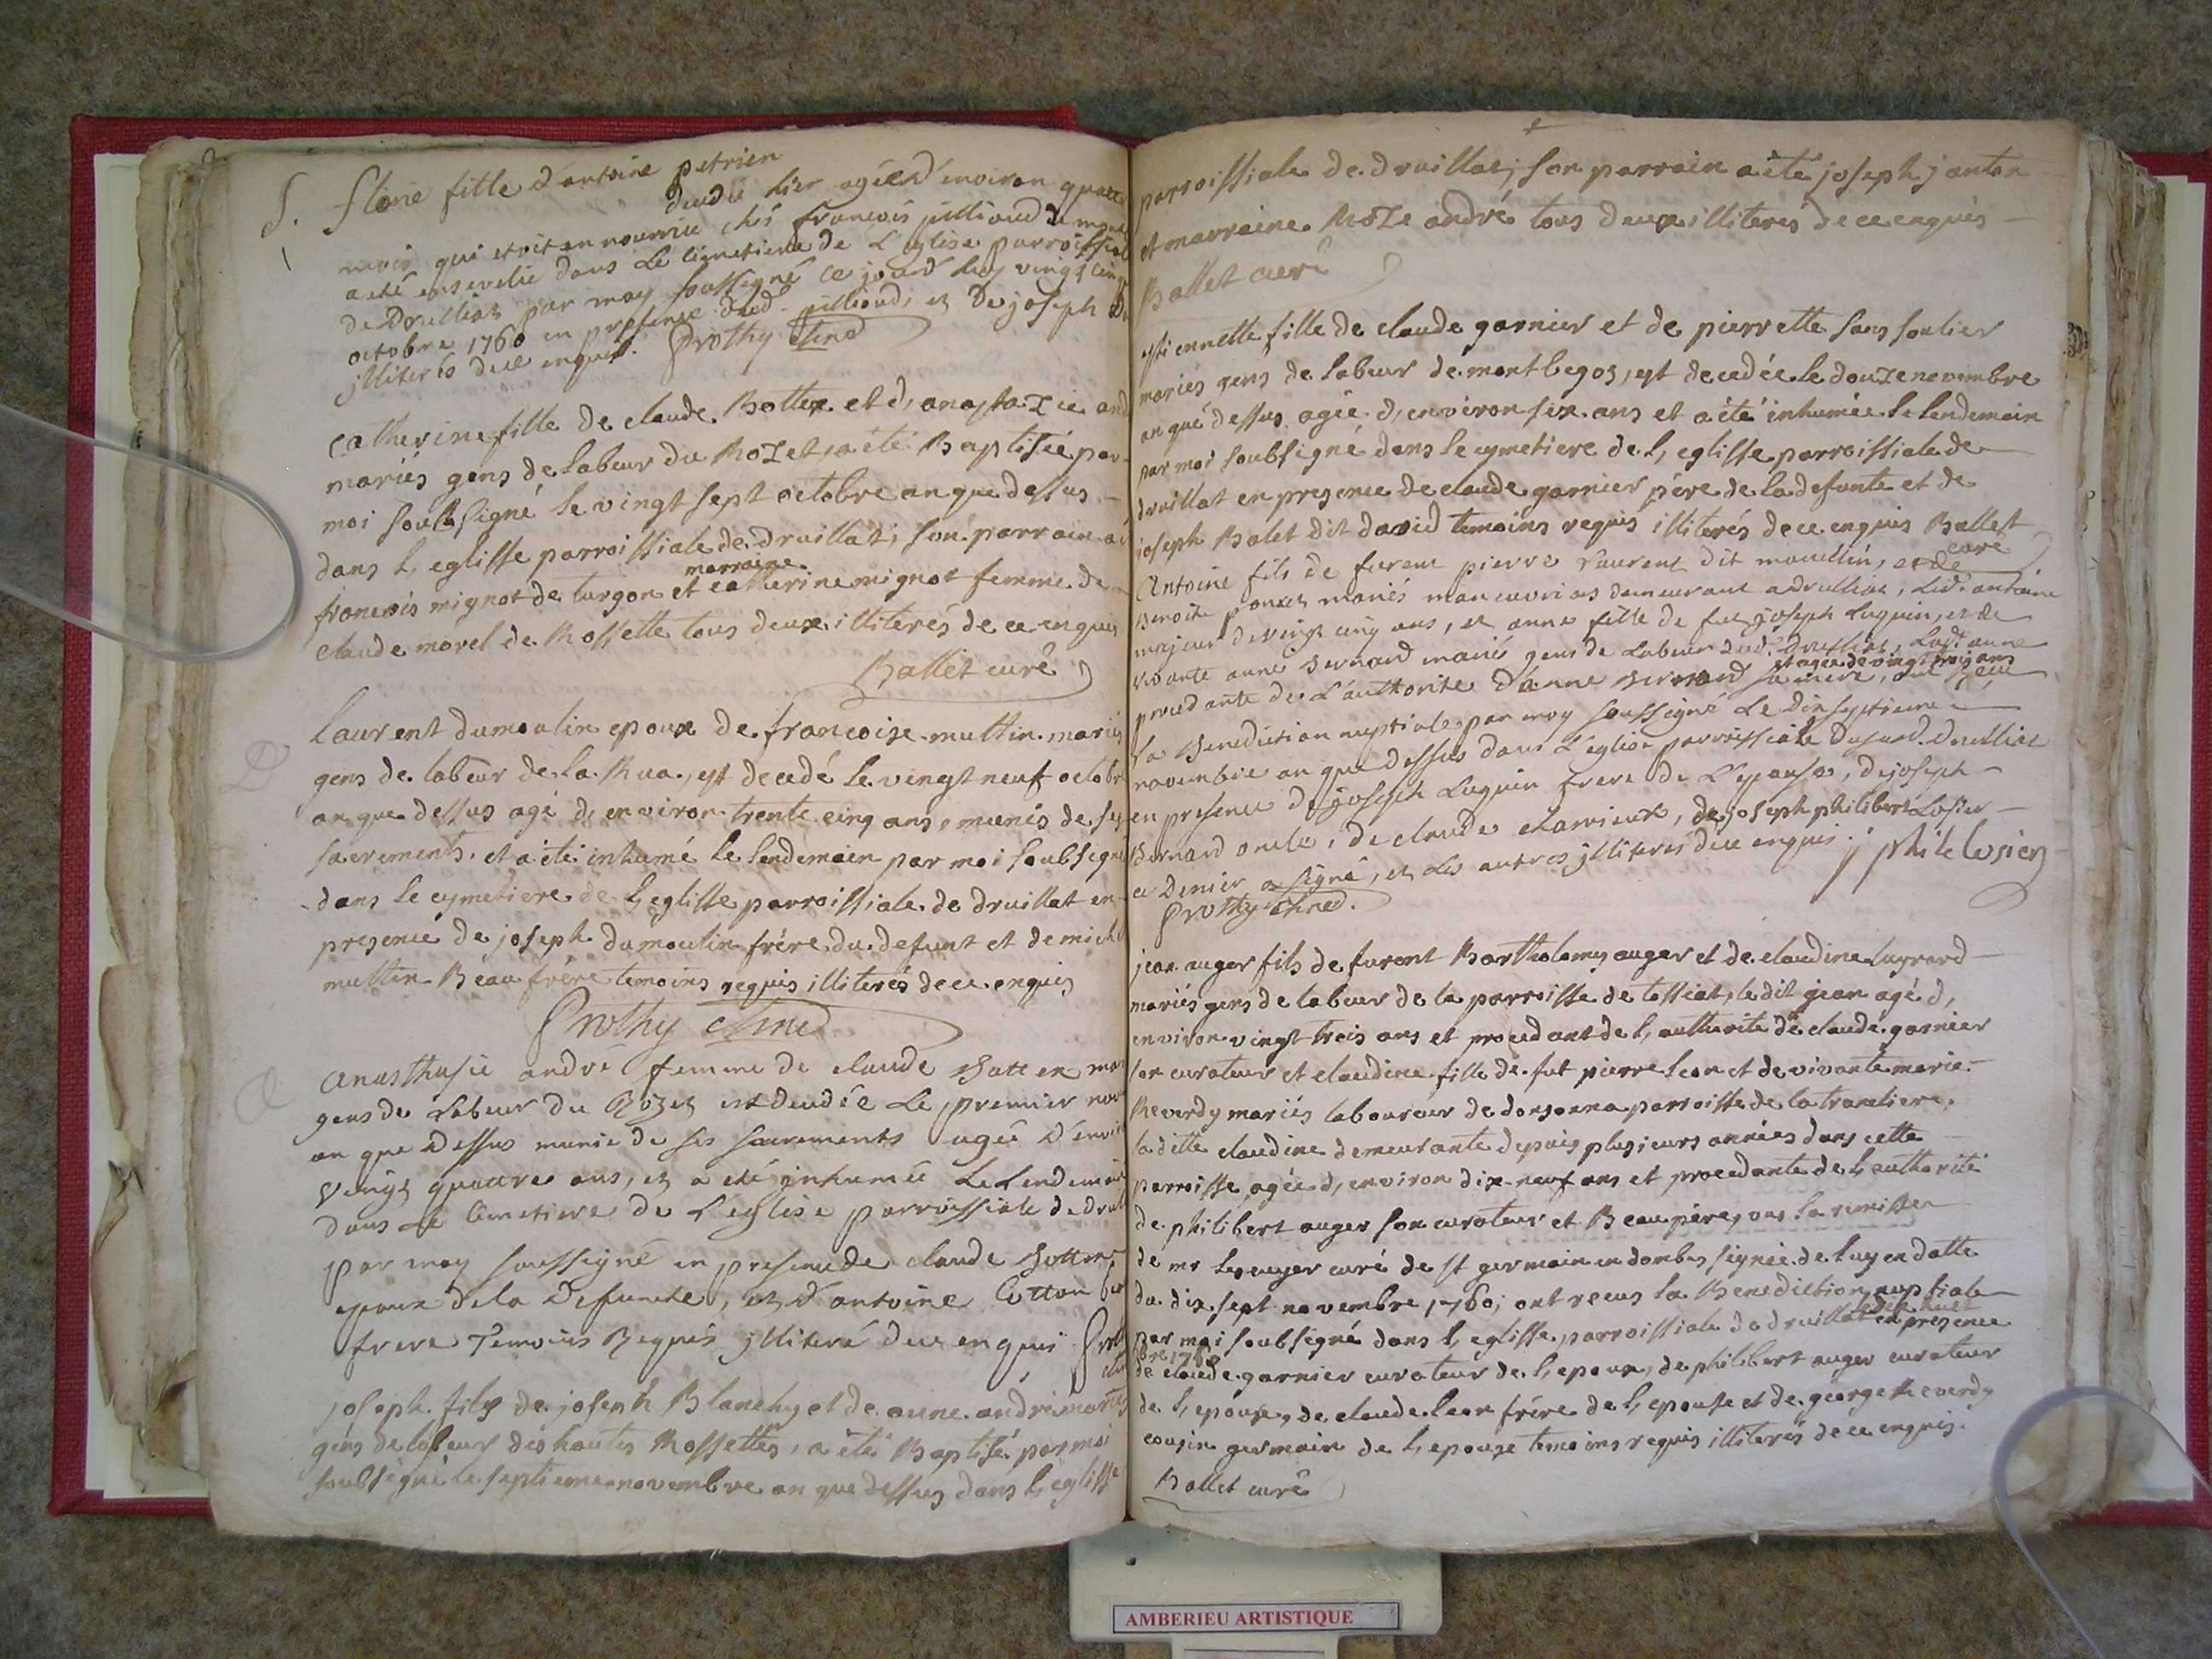 S. florie fille d'antoine petrien
decedée hier agée d'environ quatre
mois qui etoit en nourrice chés francois pilliaud de mont
a été ensevelie dans le cimetiere de L'eglise parroissiale
de Druillat par moy soussigné ce jourd'huy vingt cinq
octobre 1760 en presence dud. pilliaud, et de joseph
jlliterés de ce enquis. Prothy
catherine fille de claude Bottex et d, anastazie and
mariés gens de labeur du Rozet, a été Baptisée par
moi soubsigné le vingt sept octobre an que dessus
dans l, eglisse parroissiale de druillat; son parrain a é
francois mignot de turgon et marraine catherine mignot femme de
claude morel de Rossette tous deux illiterés de ce enquis
Ballet curé
laurent dumoulin epoux de francoise muttin mariés
gens de labeur de la Rua, est decedé le vingt neuf octobre
an que dessus agé d, environ trente cinq ans, munis de ses
sacrements, et a été inhumé le lendemain par moi soubsigné
dans le cymetiere de l, eglisse parroissiale de druillat en
presence de joseph dumoulin frére du defunt et de michel
muttin Beau frére temoins requis illiterés de ce enquis
Prothy
anasthasie andre femme de claude Botten mar
gens de Labeur du Rozet est decedée Le premier nov
an que dessus munie de ses sacrements agée d'envir
vingt quattre ans, et a été jnhumée Le Lendemain
dans Le cimetiere de L'eglise parroissiale de drull
par moy soussigné en presence de claude Botten
epoux de la defuncte, et d'antoine Cotton
frere Temoins Requis jlliteré de ce enquis Proth
joseph fils de joseph Blanchy et de anne andré mariés
gens de labeur des hautes Rossettes, a été Baptisé par moi
soubsigné le septieme novembre an que dessus dans l, eglisse
parroissiale de druillat; son parrain a été joseph janton
et marraine Roze andré tous deux illiterés de ce enquis
Ballet curé
estiennette fille de claude garnier et de pierrette sans soulier
mariés gens de labeur de montbegos, est decedée le douze novembre
an qué dessus agée d, environ six ans et a été inhumée le lendemain
par moi soubsigné dans le cymetiere de l, eglisse parroissiale de
druillat en presence de claude garnier pére de la defunte et de
joseph Balet dit david temoins requis illiterés de ce enquis Ballet
curé
Antoine fils de furent pierre Laurent dit mouellin, et de
Benoite poncet mariés manouvries demeurant a drullias, Led. antoine
majeur de vingt cinq ans, et anne fille de fut joseph Luquin, et de
vivante anne Bernard mariés gens de Labeur dud. Drullias, Lad. anne
et agée de vingt trois ans
procedante de L'authorité d'anne Bernard sa mere, ont reçu
La Benediction nuptiale par moy soussigné Le dixseptieme
novembre an que dessus dans L'eglise parroissiale dususd. drullias
en presence de joseph Luquin frere de L'epouse, de joseph
Bernard oncle, de claude chavrieux, de joseph philibert Losier
ce denier a signé, et Les autres jlliterés de ce enquis. j phile losier
Prothy
jean auger fils de furent Bartholomy auger et de claudine luyrard
mariés gens de labeur de la parroisse de tossiat, le dit jean agé d,
environ vingt trois ans et procedant de l, authorité de claude garnier
son curateur et claudine fille de fut pierre leon et de vivante marie
Reverdy mariés laboureur de donsonna parroisse de la trancliere,
la ditte claudine demeurante depuis plusieurs années dans cette
parroisse agée d, environ dix neuf ans et procedante de l, authorité
de philibert auger son curateur et Beau pére, vus la remisse
de mr curé de st germain en dombes signée de luy en datte
du dix sept novembre 1760; ont recus la Benediction nuptiale
par moi soubsigné dans l, eglisse parroissiale de druillat en presence
de claude garnier curateur de l, epoux, de philibert auger curateur
de l, epouse, de claude leon frére de l, epouse et de george Reverdy
cousin germain de l, epouse temoins requis illiterés de ce enquis.
Ballet curé
AMBERIEU ARTISTIQUE